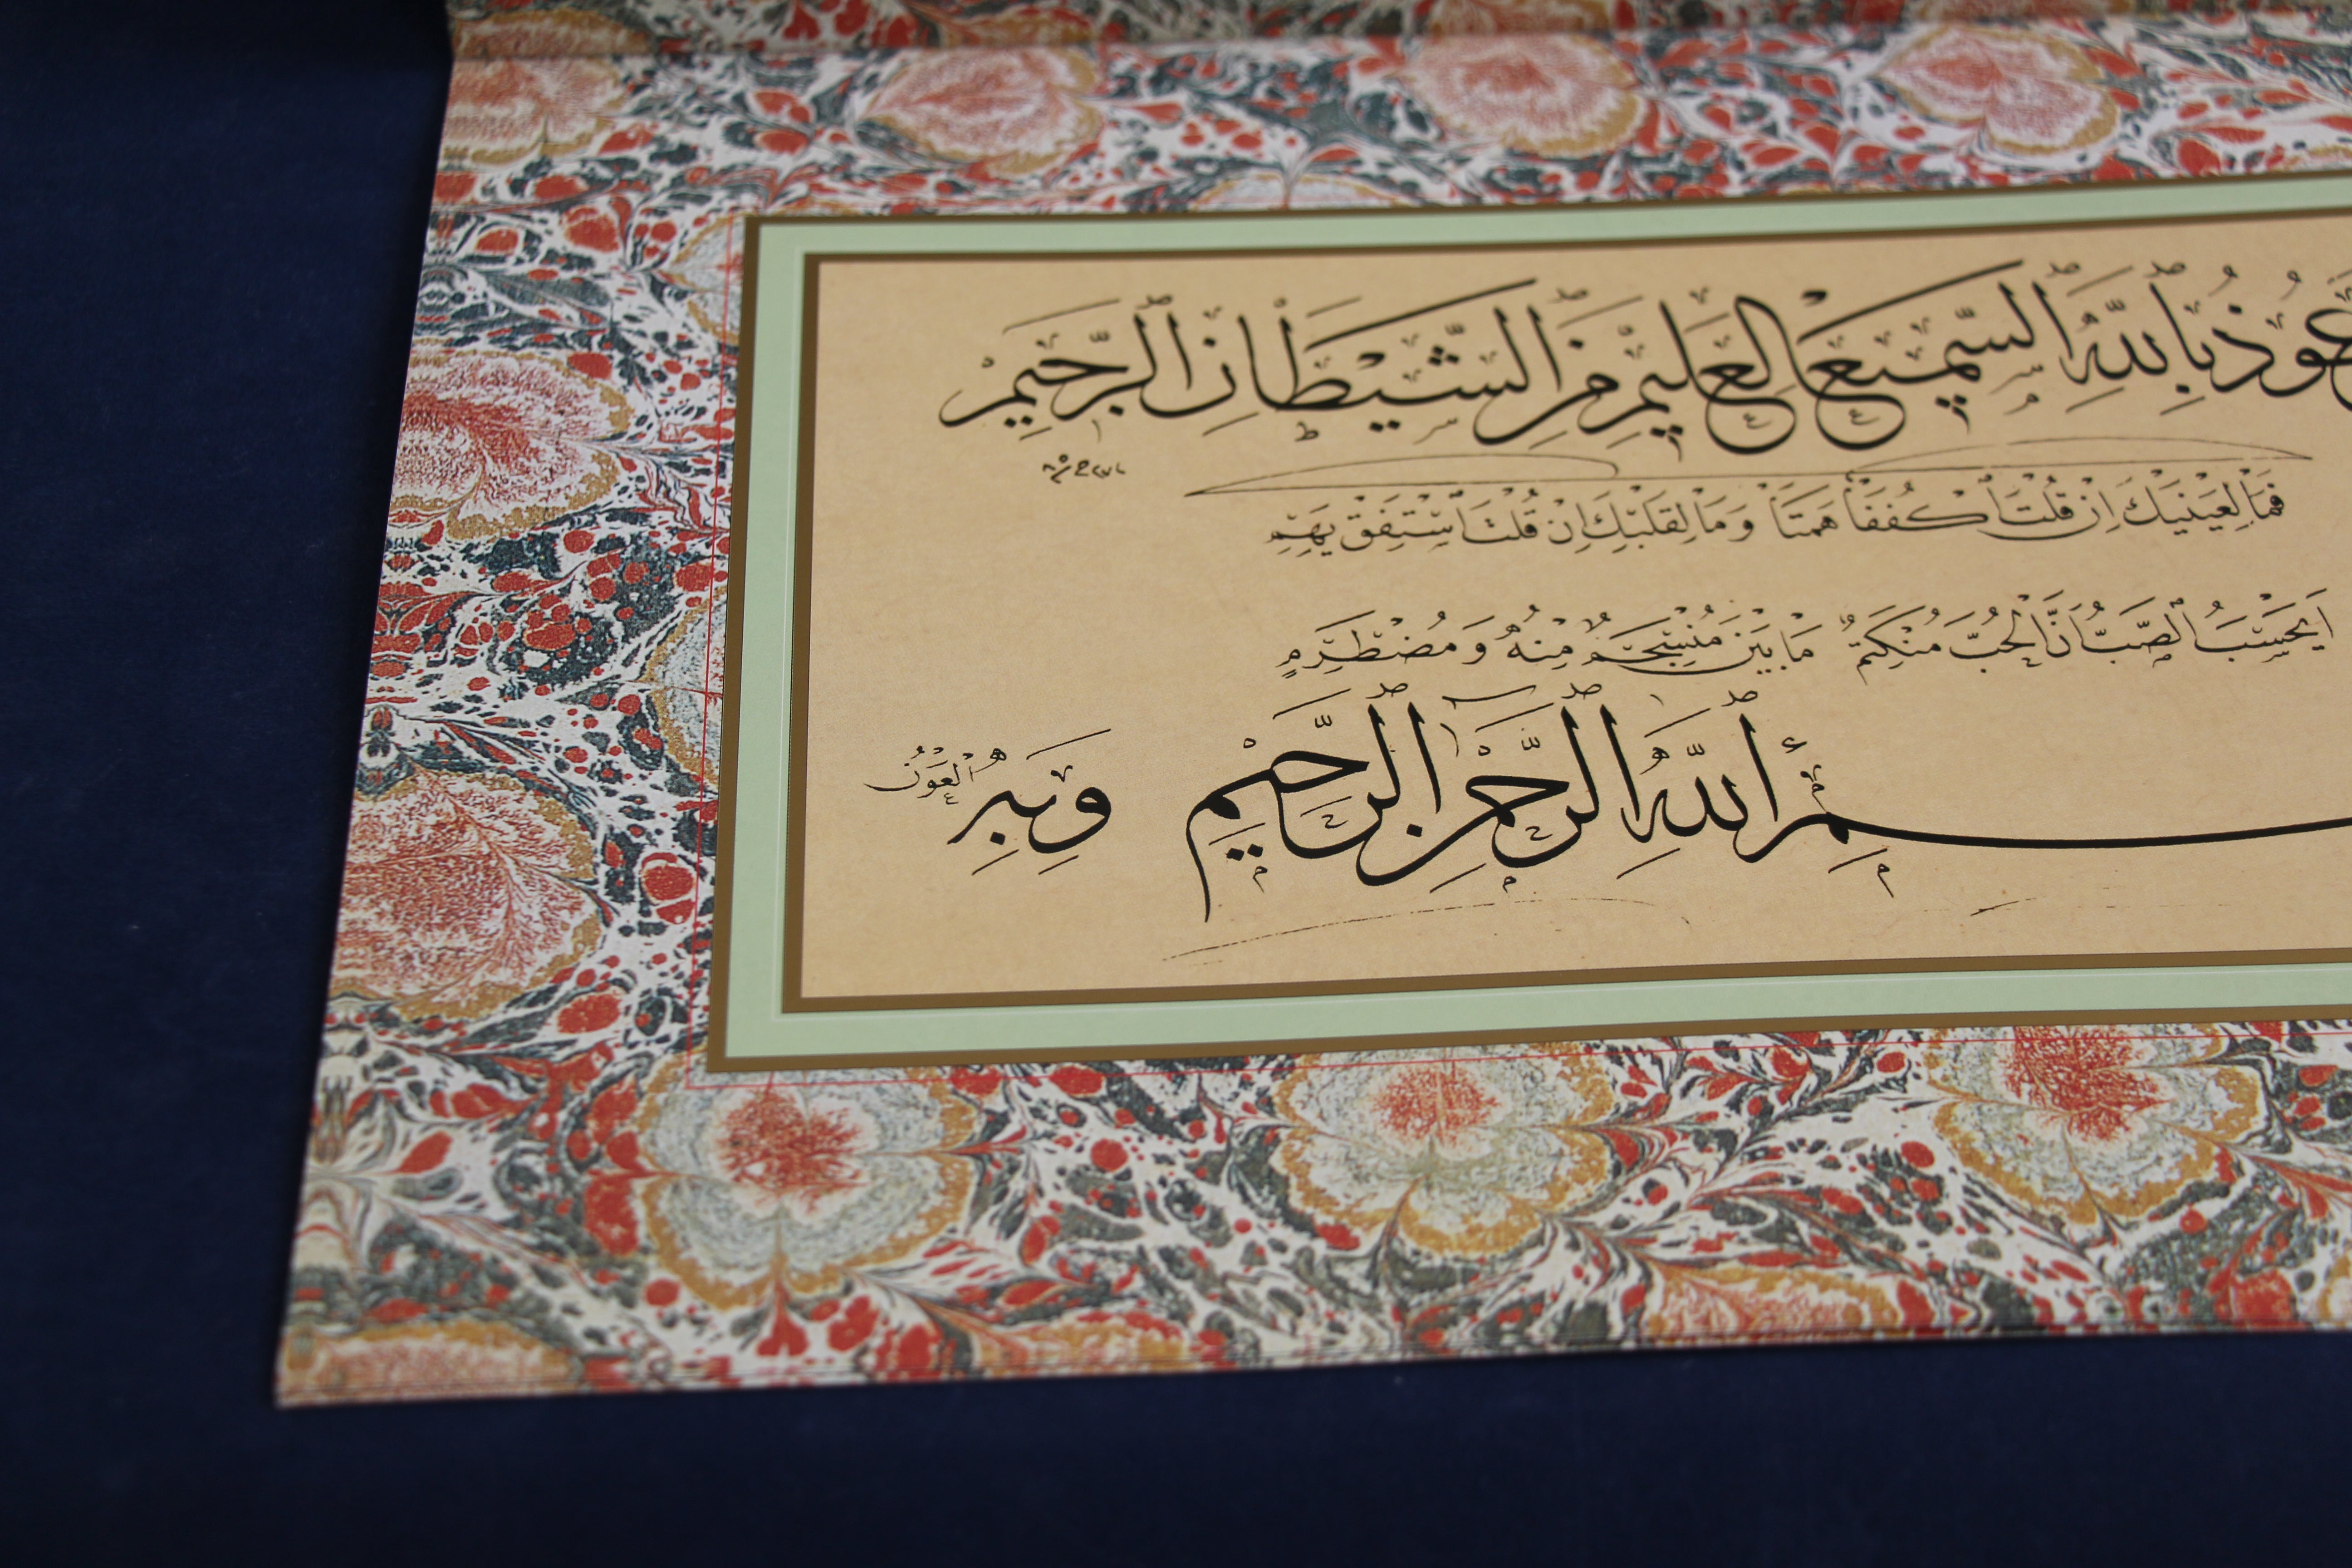 عُوذُ بِاللّٰهِ السَّمِيعِ الْعَلِيمِ مِنَ الشَّيْطَانِ الرَّجِيمِ
فَمَا لِعَيْنَيْكَ اِنْ قُلْتَ اكْفُفَا هَمَتَا وَمَا لِقَلْبِكَ اِنْ قُلْتَ اسْتَفِقْ يَهِمِ
اَيَحْسَبُ الصَّبُّ اَنَّ الْحُبَّ مُنْكَتِمٌ مَا بَيْنَ مُنْسَجِمٍ مِنْهُ وَمُضْطَرِمِ
بِسْمِ اللّٰهِ الرَّحْمٰنِ الرَّحِيمِ وَبِهِ الْعَوْنُ